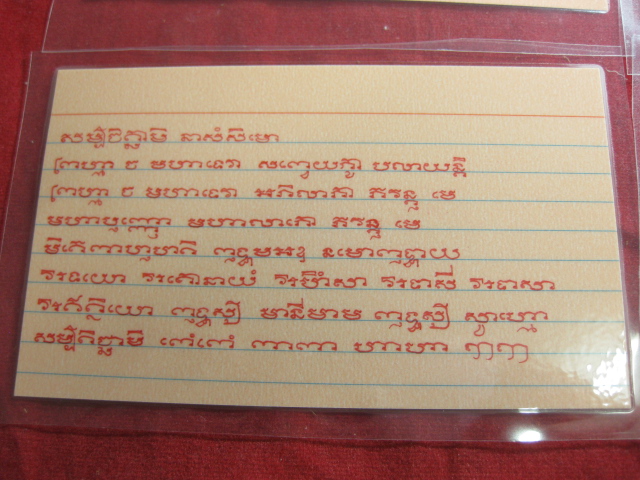 សម្បចិត្ឆាមិ នាសំសិមោ
ព្រហ្មា ច មហាទេវា សព្វេយក្ខា បលាយន្តិ
ព្រហ្មា ច មហាទេវា អភិលាភា ភវន្តុ មេ
មហាបុញ្ញោ មហាលាភោ ភវន្តុ មេ
មិតេពាហុហតិ ពុទ្ធមអឧ នមោពុទ្ធាយ
វិរទយោ វិរគោនាយំ វិរហិំសា វិរទាសី វិរទាសា
វិរឥត្ថិយោ ពុទ្ធស្ស មានីមាម ពុទ្ធស្ស ស្វាហោម
សម្បតិច្ឆាមិ ពេំពេំ ពាពា ហាហា